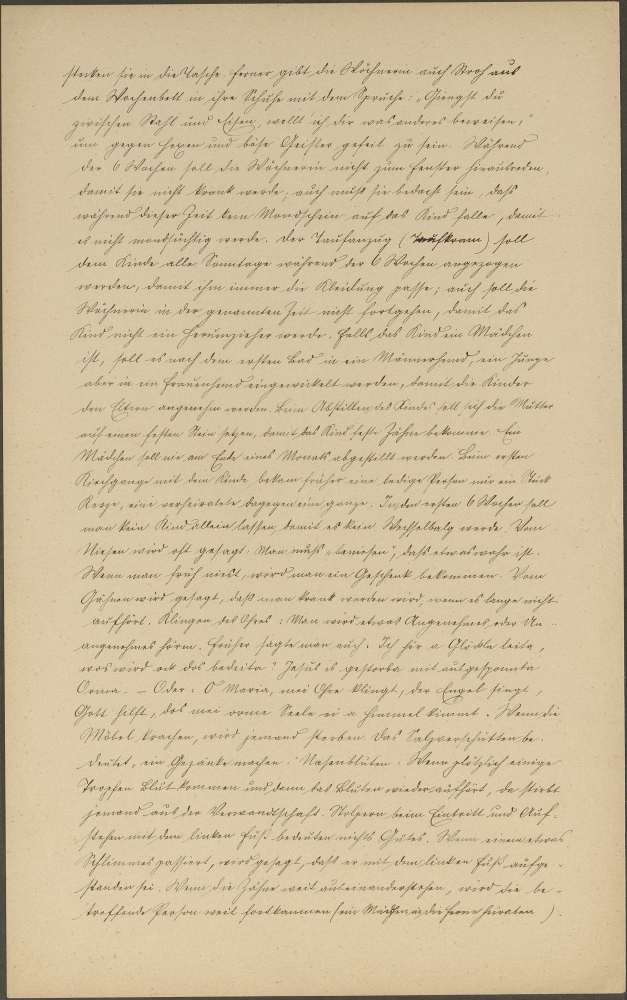 stecken sie in die Tasche. Ferner gibt die Wöchnerin auch Stroh aus
dem Wochenbett in ihre Schuhe mit dem Spruche: „Giengst du
zwischen Stahl und Eisen, wollt ich dir was anderes beweisen,"
um gegen Hexen und böse Geister gefeit zu sein. Während
der 6 Wochen soll die Wöchnerin nicht zum Fenster
damit sie nicht krank werde; auch muß sie bedacht sein, daß
während dieser Zeit kein Mondschein auf das Kind falle, damit
es nicht mondsüchtig werde. Der Taufanzug soll
dem Kinde alle Sonntage während der 6 Wochen angezogen
werden, damit ihm immer die Kleidung passe; auch soll die
Wöchnerin in der genannten Zeit nicht fortgehen, damit das
Kind nicht ein Herumzieher werde. Falls das Kind ein Mädchen
ist, soll es nach dem ersten Bad in ein Männerhemd, ein Junge
aber in ein Frauenhemd eingewickelt werden, damit die Kinder
den Eltern angenehm werden. Beim Abstillen des Kindes soll sich die Mutter
auf einen festen Stein setzen, damit das Kind feste Zähne bekomme. Ein
Mädchen soll nie am Ende eines Monats abgestillt werden. Beim ersten
Kirchgange mit dem Kinde bekam früher eine ledige Person nur ein Stück
Kerze, eine verheiratete dagegen eine ganze. In den ersten 6 Wochen soll
man kein Kind allein lassen, damit es kein Wechselbalg werde. Vom
Niesen wird oft gesagt: Man muß „beniesen", daß etwas wahr ist.
Wenn man früh niest, wird man ein Geschenk bekommen. Vom
Gähnen wird gesagt, daß man krank werden wird, wenn es lange nicht
aufhört. Klingen des Ohres: Man wird etwas Angenehmes oder Un-
angenehmes hören. Früher sagte man auch: Ich hör a Glöckla leita,
wos wird ock dos bedeita? Jesus is gestorba mit ausgesponnta
Orma. – Oder: O Maria, mei Ohr klingt, der Engel singt,
Gott hilft, dos mei orme Seele ei a Himmel kimmt. Wenn die
Möbel krachen, wird jemand sterben. Das Salzverschütten be-
deutet, ein Gezänke machen. Nasenbluten: Wenn plötzlich einige
Tropfen Blut kommen und dann das Bluten wieder aufhört, da stirbt
jemand aus der Verwandtschaft. Stolpern beim Eintritt und Auf-
stehen mit dem linken Fuß bedeuten nichts Gutes. Wenn einem etwas
Schlimmes passiert, wird gesagt, daß er mit dem linken Fuß aufge-
standen sei. Wenn die Zähne weit auseinanderstehen, wird die be-
treffende Person weit fortkommen (ein Mädchen in die Ferne heiraten).